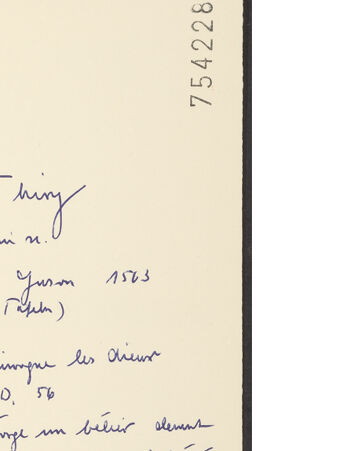 754228
Thiry
n.
Yuson 1563
Tafeln)
invoque les dieux
D. 56
orge un bélier devant